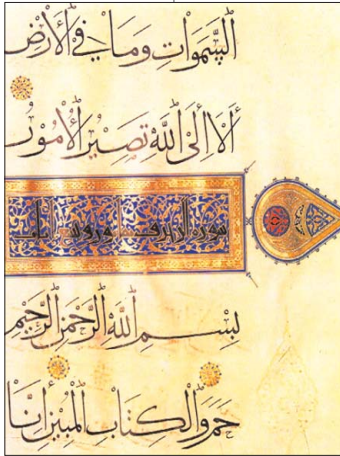 السَّمَوَاتِ وَمَا فِي الْأَرْضِ
أَلَا إِلَى اللَّهِ تَصِيرُ الْأُمُورُ
سورة الزخرف
بِسْمِ اللَّهِ الرَّحْمَنِ الرَّحِيمِ
حم وَالْكِتَابِ الْمُبِينِ إِنَّا